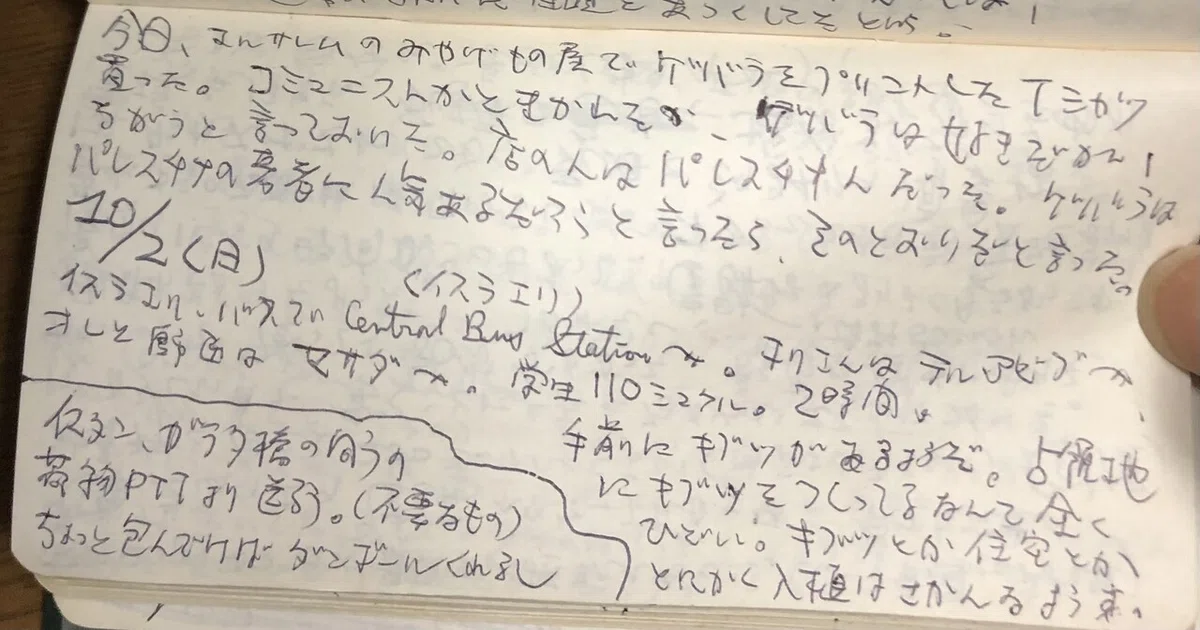 今日、エルサレムのみやげもの屋でゲバラをプリントしたTシャツ
買った。コミュニストかときかれたが、ゲバラは好きだがね!
ちがうと言っておいた。店の人はパレスチナ人だった。ゲバラは
パレスチナの若者に人気あるだろうと言ったら、そのとおりだと言った。
10/2(日)
(イスラエリ)
イスラエリ、バスで Central Bus Station へ。 テルアビブへ
と 死海 マサダへ。学生110シェケル。2時間。
手前にキブツがあるようだ。占領地
にキブツをつくってるなんて全く
ひどい。キブツとか住宅とか
とにかく入植はさかんなようだ。
イスタン、ガラタ橋の向うの
荷物PTTより送る。(不要なもの)
ちょっと包んでけばダンボールくれるし